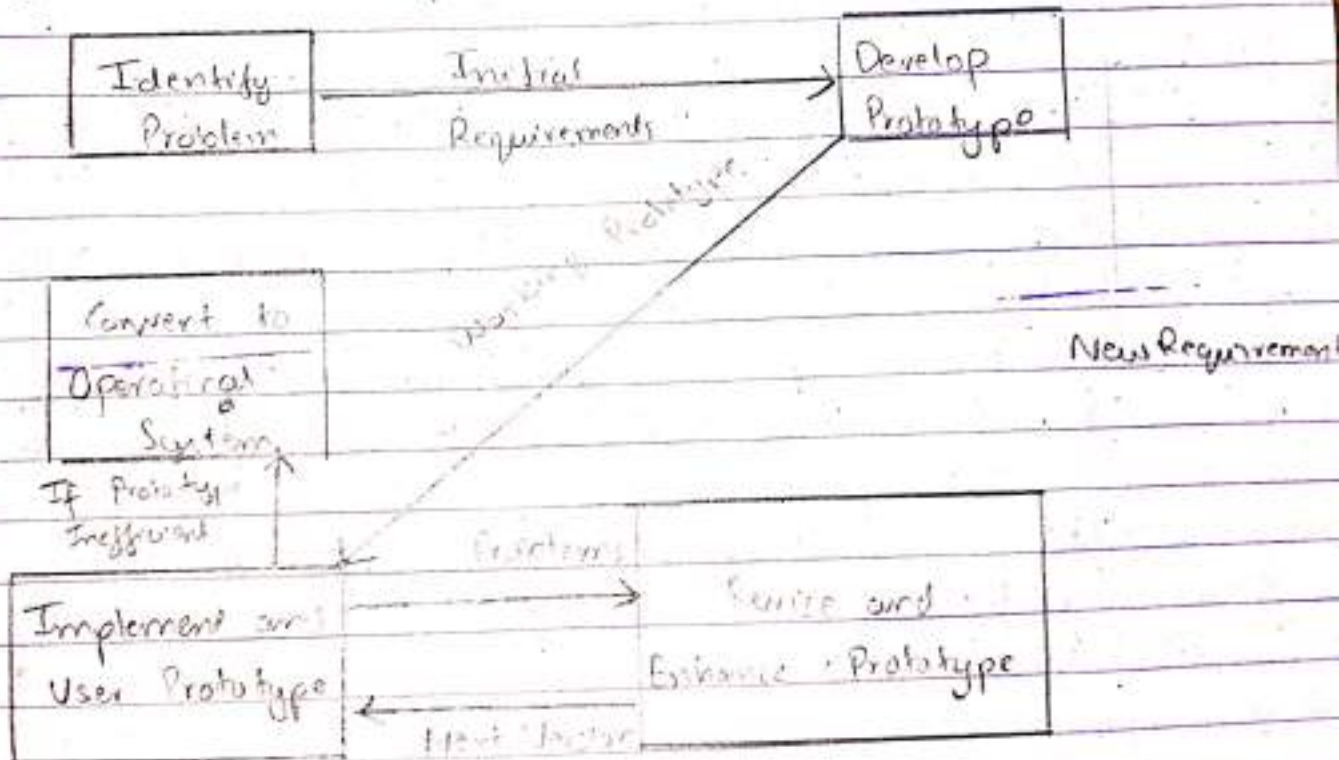 Identify
Problem
Initial
Requirements
Develop
Prototype
Working Prototype
Convert to
Operatical
System
New Requirement
If Prototyp
Inefficient
Implement and
User Prototype
and
Enhance Prototype
Next